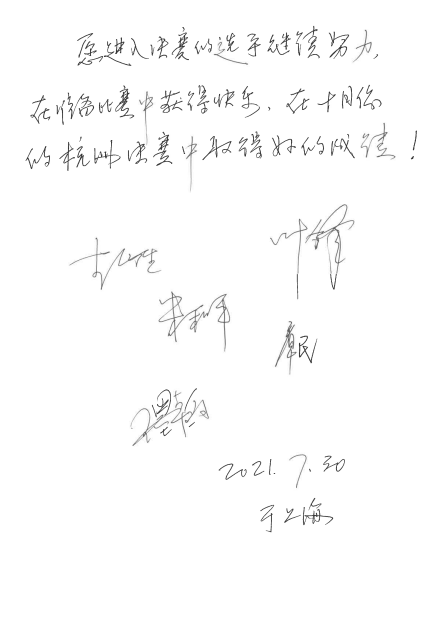 愿进入决赛的选手继续努力,
在准备比赛中获得快乐，在十月份
的杭州决赛中取得好的成绩！
叶锋
2021.7.30
于上海